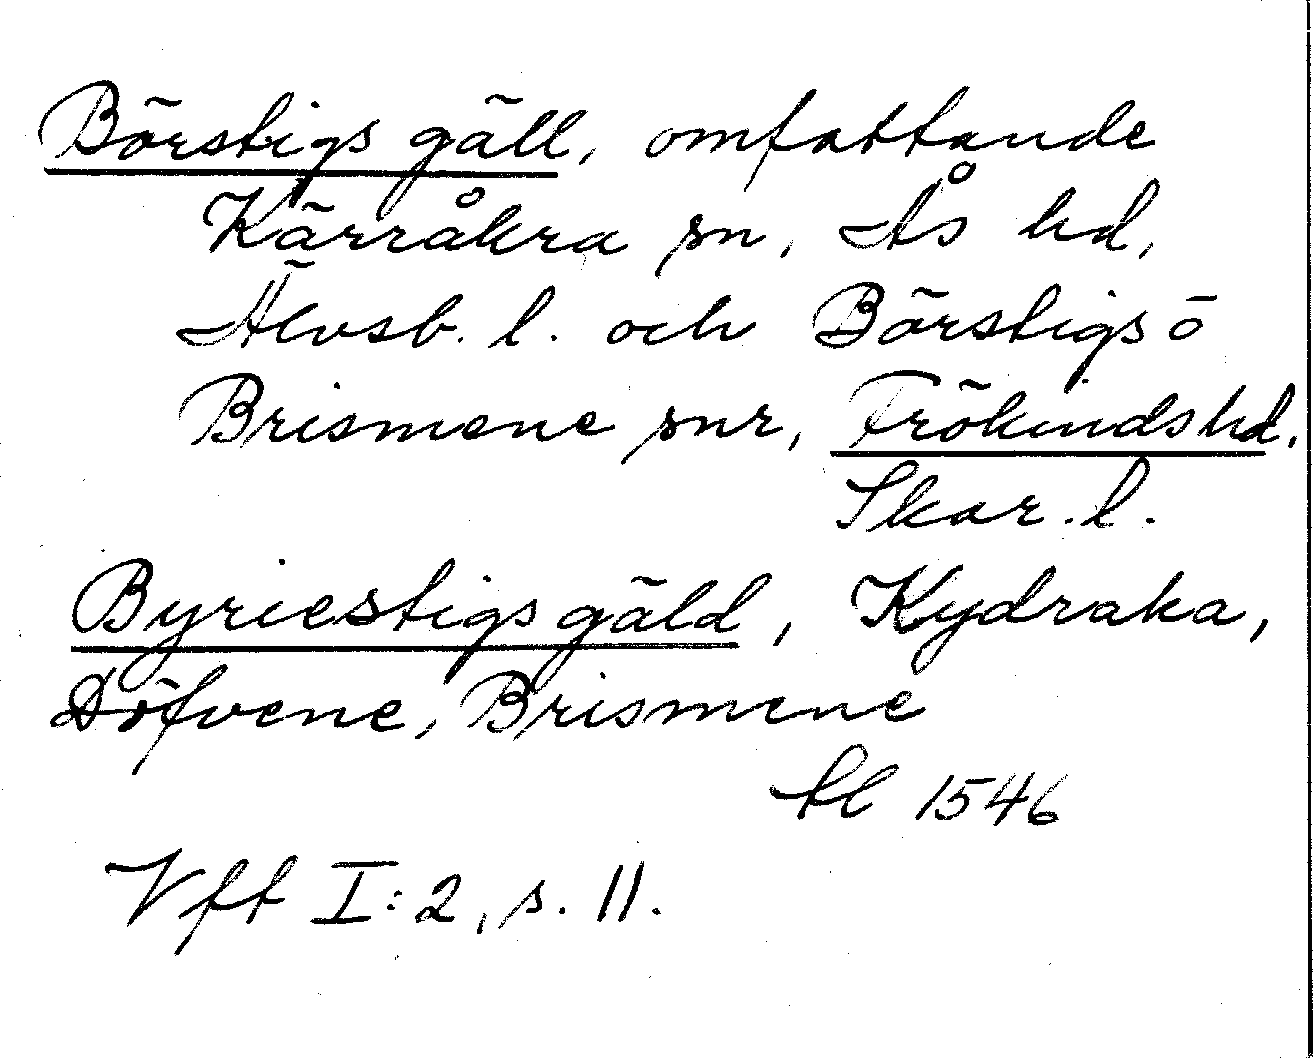 Börstigs gäll, omfattande
Kärråkra sn, Ås hd,
Älvsb. l. och Börstigs ō
Brismene snr, Frökinds hd.
Skar. l.
Byriestigs gäld, Kydraka,
Döfvene, Brismene
tl 1546
Vff I:2, s. 11.